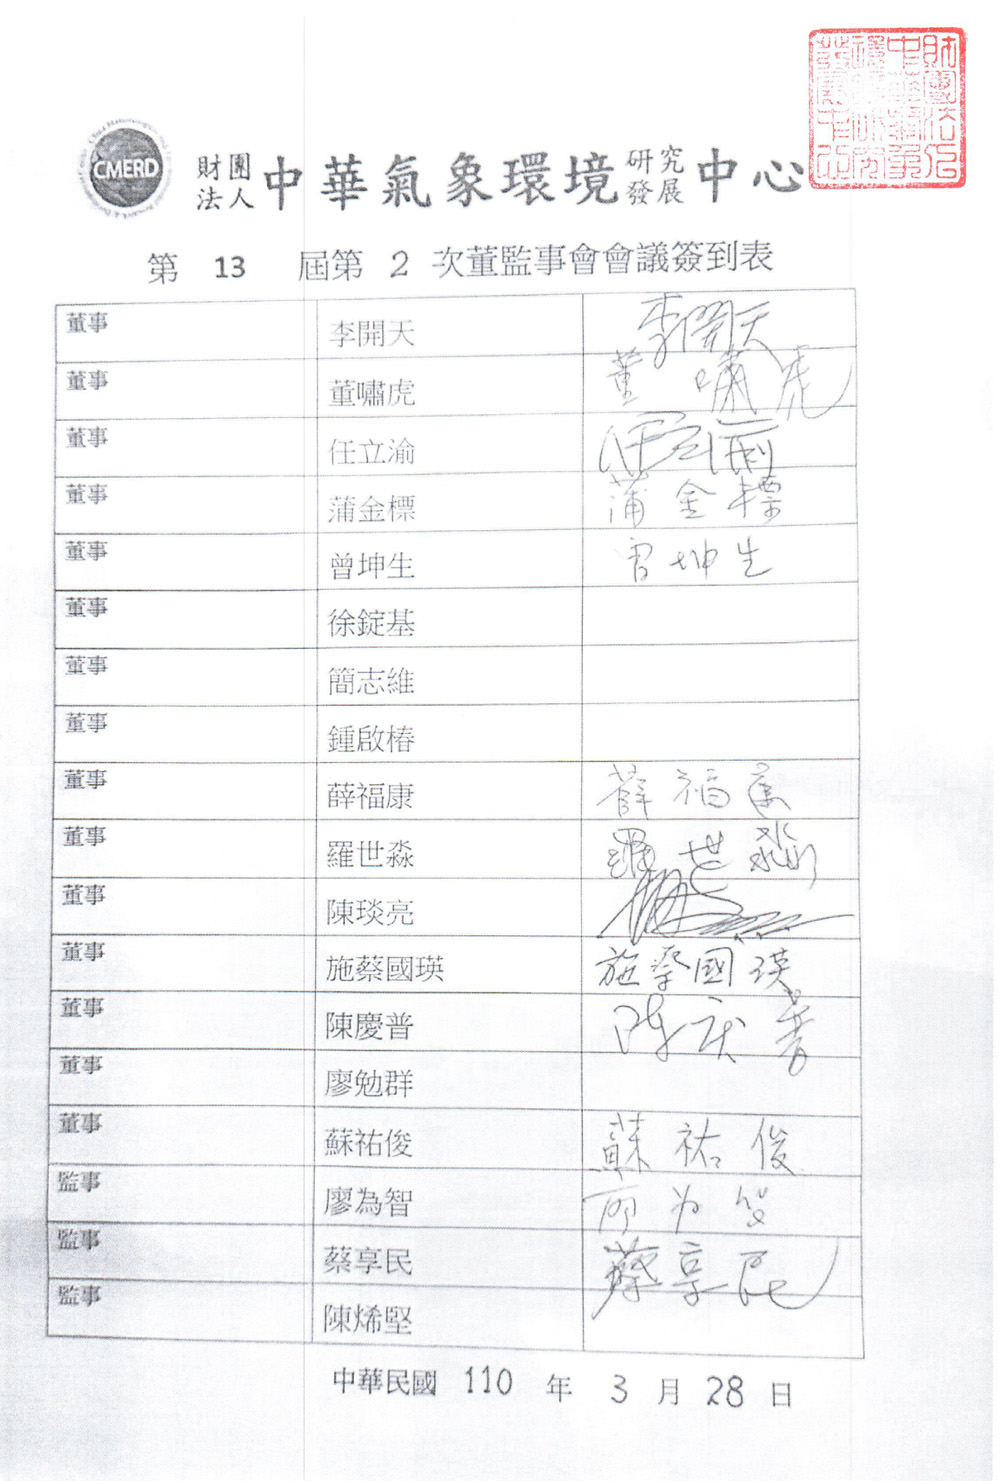 CMERD
財團法人中華氣象環境研究發展中心
第 13 屆第 2 次董監事會會議簽到表
董事 李開天 李開天
董事 董嘯虎 董嘯虎
董事 任立渝 任立渝
董事 蒲金標 蒲金標
董事 曾坤生 曾坤生
董事 徐錠基
董事 簡志維
董事 鍾啟椿
董事 薛福康 薛福康
董事 羅世淼 羅世淼
董事 陳琰亮
董事 施蔡國瑛 施蔡國瑛
董事 陳慶普 陳庆普
董事 廖勉群
董事 蘇祐俊 蘇祐俊
監事 廖為智
監事 蔡享民 蔡享民
監事 陳烯堅
中華民國 110 年 3 月 28 日